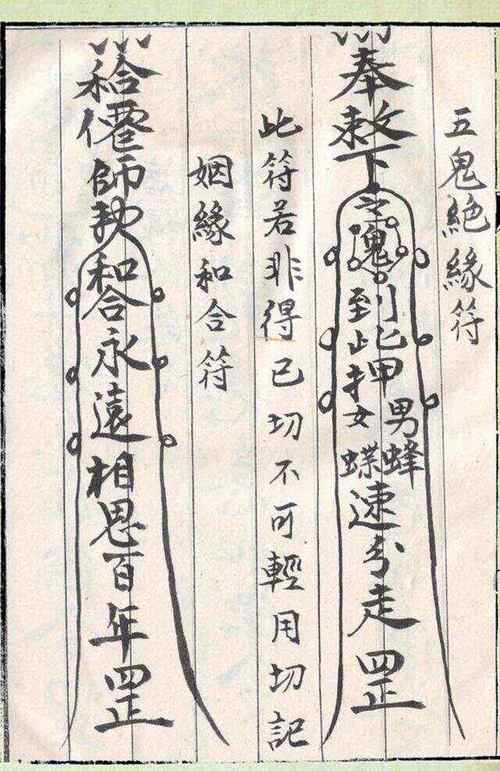 五鬼絕緣符
奉敕下
到此押
男女
蜂蝶
速分走罡
此符若非得已切不可輕用切記
姻緣和合符
僊師敕和合永遠相思百年罡